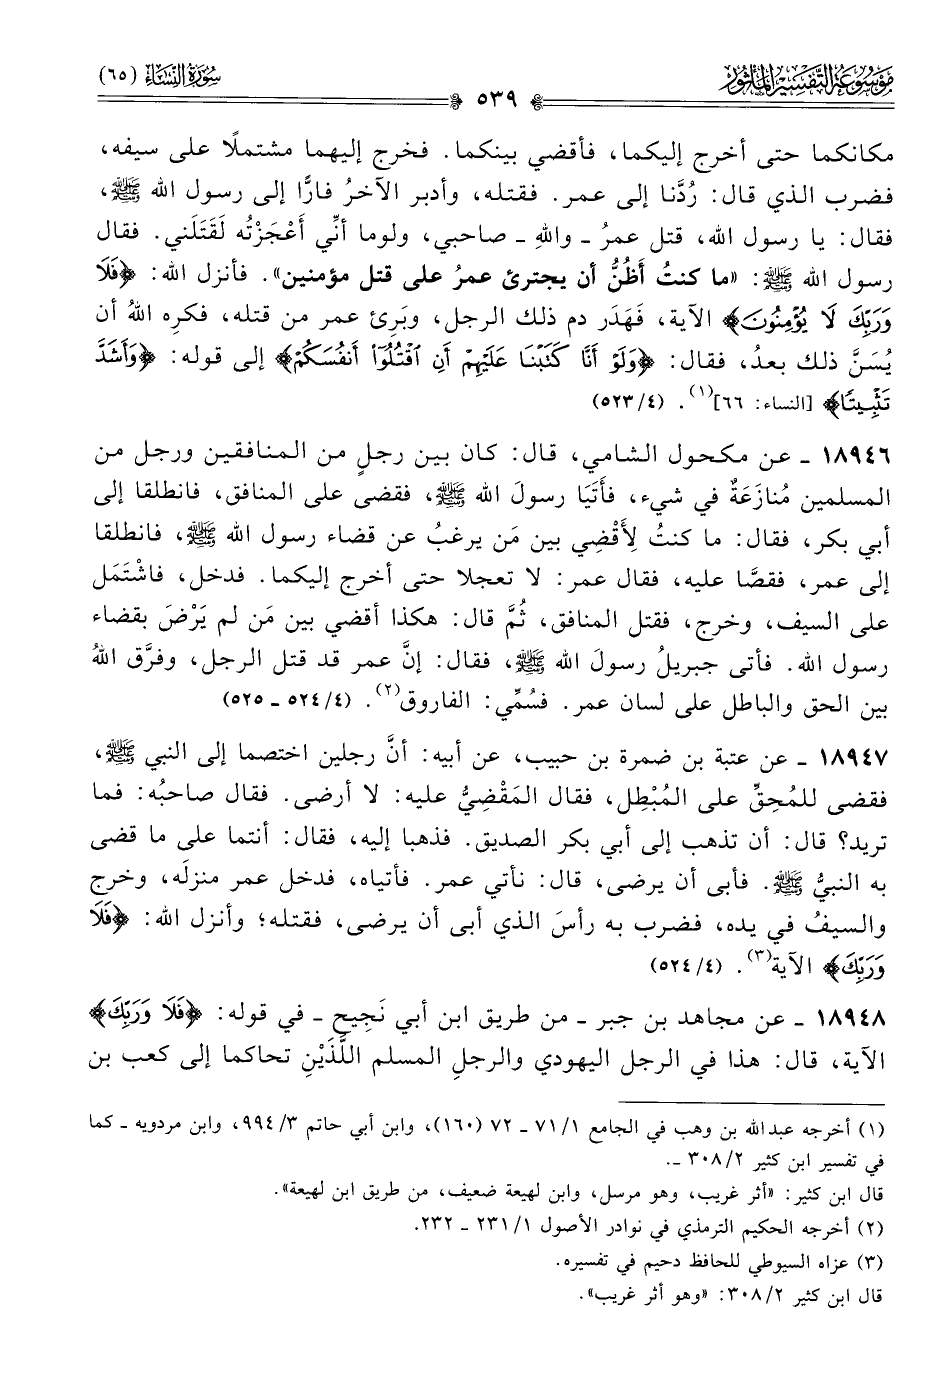 مَوْسُوعَةُ التَّفْسِيرِ المَأْثُور
سُورَةُ النِّسَاءِ (٦٥)
٥٣٩
مكانكما حتى أخرج إليكما، فأقضي بينكما. فخرج إليهما مشتملًا على سيفه،
فضرب الذي قال: رُدَّنا إلى عمر. فقتله، وأدبر الآخرُ فارًّا إلى رسول الله ﷺ،
فقال: يا رسول الله، قتل عمرُ ـ واللهِ ـ صاحبي، ولوما أنِّي أَعْجَزْتُه لَقَتَلَني. فقال
رسول الله ﷺ: «ما كنتُ أظُنُّ أن يجترئ عمرُ على قتل مؤمنين». فأنزل الله: ﴿فَلَا
وَرَبِّكَ لَا يُؤْمِنُونَ﴾ الآية، فَهَدَر دم ذلك الرجل، وبَرِئ عمر من قتله، فكره اللهُ أن
يُسَنَّ ذلك بعدُ، فقال: ﴿وَلَوْ أَنَّا كَتَبْنَا عَلَيْهِمْ أَنِ ٱقْتُلُوٓا۟ أَنفُسَكُمْ﴾ إلى قوله: ﴿وَأَشَدَّ
تَثْبِيتًا﴾ [النساء: ٦٦](١). (٥٢٣/٤)
١٨٩٤٦ ـ عن مكحول الشامي، قال: كان بين رجلٍ من المنافقين ورجل من
المسلمين مُنازَعَةٌ في شيء، فأَتَيَا رسولَ الله ﷺ، فقضى على المنافق، فانطلقا إلى
أبي بكر، فقال: ما كنتُ لِأَقْضِي بين مَن يرغبُ عن قضاء رسول الله ﷺ، فانطلقا
إلى عمر، فقصَّا عليه، فقال عمر: لا تعجلا حتى أخرج إليكما. فدخل، فاشْتَمَل
على السيف، وخرج، فقتل المنافق، ثُمَّ قال: هكذا أقضي بين مَن لم يَرْضَ بقضاء
رسول الله. فأتى جبريلُ رسولَ الله ﷺ، فقال: إنَّ عمر قد قتل الرجل، وفرَّق اللهُ
بين الحق والباطل على لسان عمر. فسُمِّي: الفاروق(٢). (٥٢٤/٤ ـ ٥٢٥)
١٨٩٤٧ ـ عن عتبة بن ضمرة بن حبيب، عن أبيه: أنَّ رجلين اختصما إلى النبي ﷺ،
فقضى للمُحِقِّ على المُبْطِل، فقال المَقْضِيُّ عليه: لا أرضى. فقال صاحبُه: فما
تريد؟ قال: أن تذهب إلى أبي بكر الصديق. فذهبا إليه، فقال: أنتما على ما قضى
به النبيُّ ﷺ. فأبى أن يرضى، قال: نأتي عمر. فأتياه، فدخل عمر منزلَه، وخرج
والسيفُ في يده، فضرب به رأسَ الذي أبى أن يرضى، فقتله؛ وأنزل الله: ﴿فَلَا
وَرَبِّكَ﴾ الآية(٣). (٥٢٤/٤)
١٨٩٤٨ ـ عن مجاهد بن جبر ـ من طريق ابن أبي نَجِيح ـ في قوله: ﴿فَلَا وَرَبِّكَ﴾
الآية، قال: هذا في الرجل اليهودي والرجلِ المسلم اللَّذَيْنِ تحاكما إلى كعب بن
(١) أخرجه عبدالله بن وهب في الجامع ٧١/١ ـ ٧٢ (١٦٠)، وابن أبي حاتم ٩٩٤/٣، وابن مردويه ـ كما
في تفسير ابن كثير ٣٠٨/٢ ـ.
قال ابن كثير: «أثر غريب، وهو مرسل، وابن لهيعة ضعيف، من طريق ابن لهيعة».
(٢) أخرجه الحكيم الترمذي في نوادر الأصول ٢٣١/١ ـ ٢٣٢.
(٣) عزاه السيوطي للحافظ دحيم في تفسيره.
قال ابن كثير ٣٠٨/٢: «وهو أثر غريب».